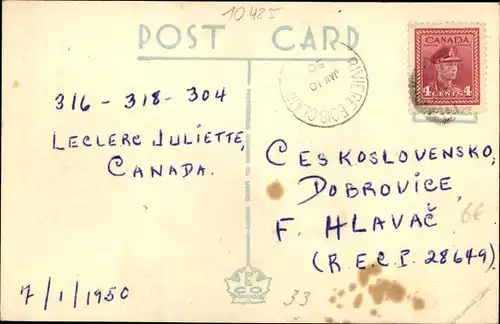 10425
POST CARD
CANADA
4 CENTS 4
RIVIERE BOIS CLAIR
JAN 10
50
316 - 318 - 304
LECLERC JULIETTE,
CANADA.
7/1/1950
CESKOSLOVENSKO,
DOBROVICE,
F. HLAVAČ
(R E C. P. 28649).
6€
33
PECO